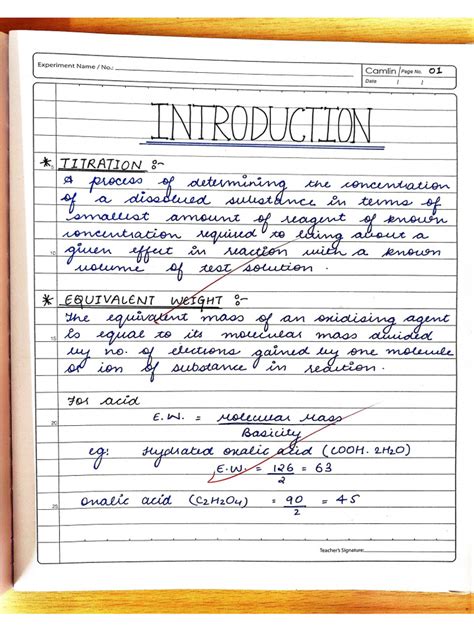 Experiment Name / No.:
Camlin Page No. 01
Date / /
INTRODUCTION
* TITRATION :-
A process of determining the concentration
of a dissolved substance in terms of
smallest amount of reagent of known
concentration required to bring about a
given effect in reaction with a known
volume of test solution.
* EQUIVALENT WEIGHT :-
The equivalent mass of an oxidising agent
is equal to its molecular mass divided
by no. of electrons gained by one molecule
or ion of substance in reaction.
For acid
E.W. = Molecular Mass
Basicity
eg: Hydrated oxalic acid (COOH. 2H2O)
E.W. = 126 = 63
2
oxalic acid (C2H2O4) = 90 = 45
2
Teacher's Signature: